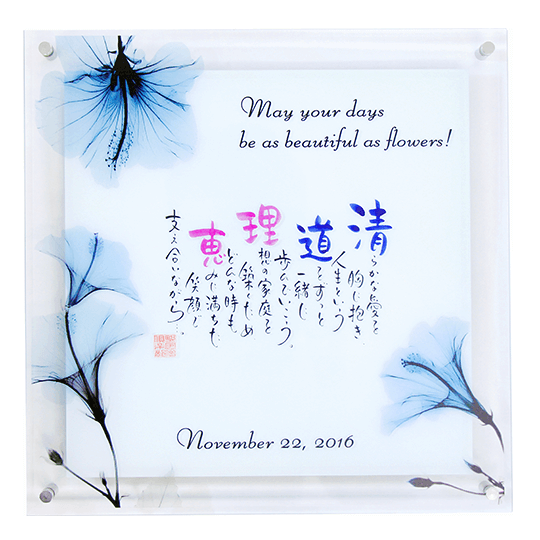 May your days
be as beautiful as flowers!
清らかな愛を
胸に抱き
人生という
道をずっと
一緒に
歩んでいこう。
理想の家庭を
築くため
どんな時も
恵みに満ちた
笑顔で
支え合いながら…。
November 22, 2016